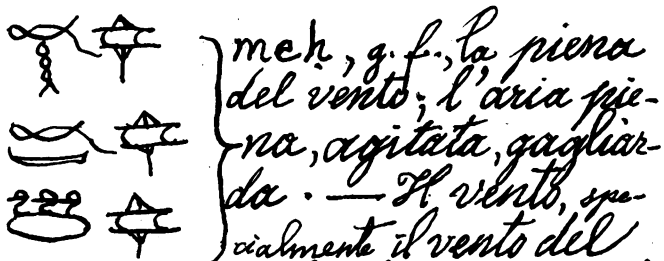 meh, g. f., la piena
del vento; l'aria pie-
na, agitata, gagliar-
da. — Il vento, spe-
cialmente il vento del